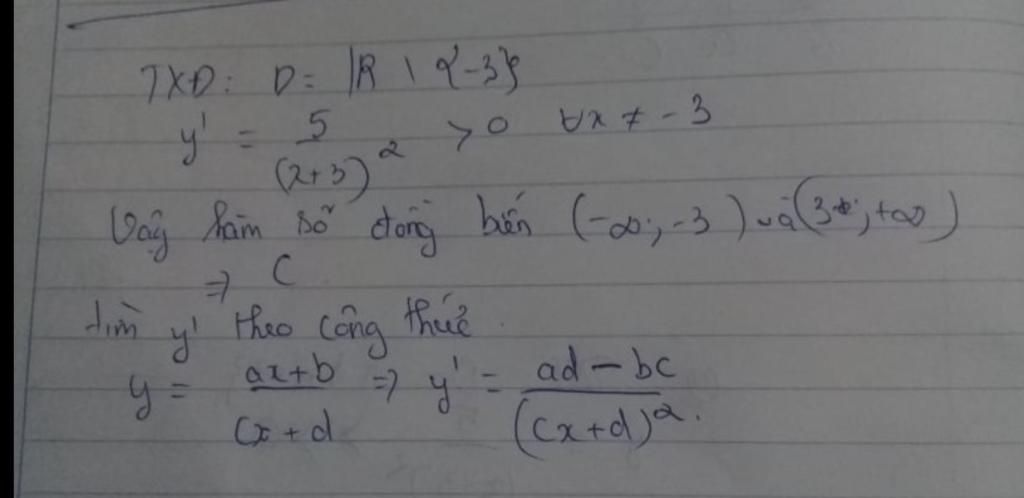 TXĐ: D = |R \ {-3}
y' = 5/(x+3)² > 0 ∀x ≠ -3
Vậy hàm số đồng biến (-∞; -3) và (3; +∞)
⇒ C
tìm y' theo công thức.
y = ax+b/cx+d ⇒ y' = ad-bc/(cx+d)².